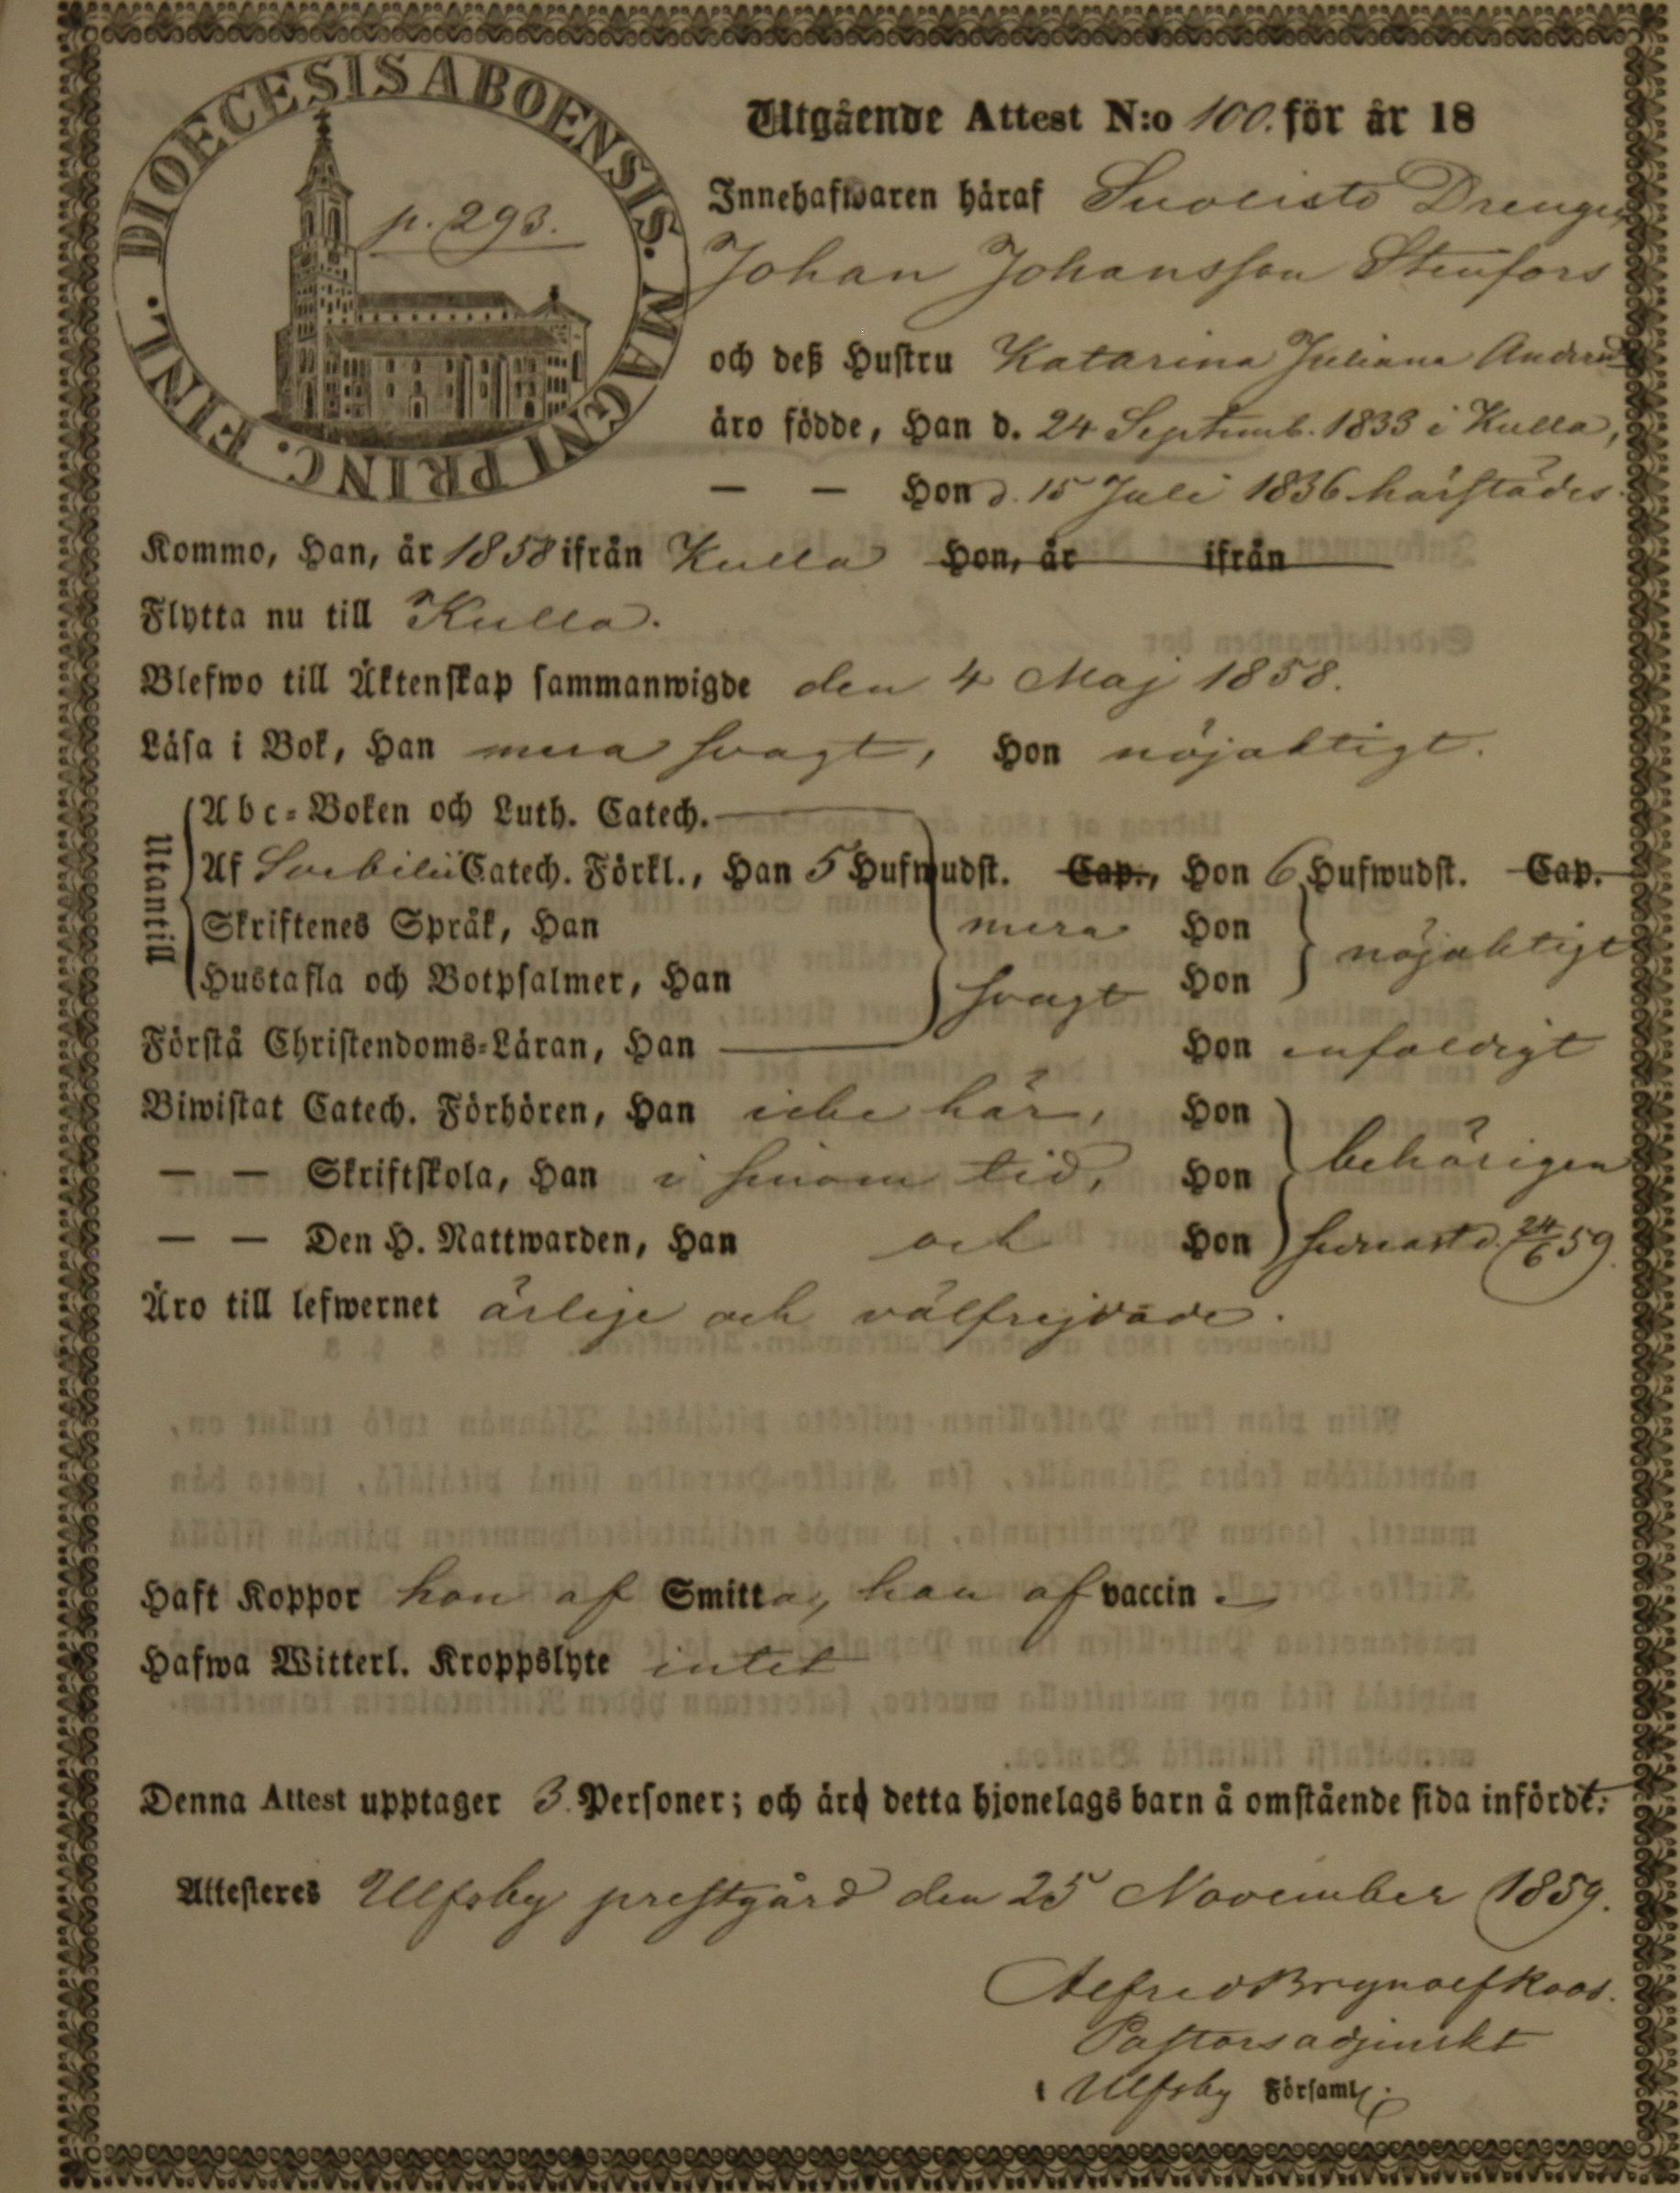 DIOECESIS ABOENSIS. MAGNI PRINC. FINL.
p. 293.
Utgående Attest N:o 100. för år 18
Innehafwaren häraf Suolisto Drengen
Johan Johansson Stenfors
och deß Hustru Katarina Juliana
äro födde, Han d. 24 Septemb. 1833 i Kulla,
— — Hon d. 15 Juli 1836 härstädes.
Kommo, Han, år 1858 ifrån Kulla Hon, år ifrån
Flytta nu till Kulla.
Blefwo till Äktenskap sammanwigde den 4 Maj 1858.
Läsa i Bok, Han mera svagt, Hon nöjaktigt.
Utantill
Abc-Boken och Luth. Catech.
Af Svebilii Catech. Förkl., Han 5 Hufwudst. Cap., Hon 6 Hufwudst. Cap.
Skriftenes Språk, Han mera Hon nöjaktigt
Hustafla och Botpsalmer, Han svagt Hon
Förstå Christendoms-Läran, Han Hon enfaldigt
Biwistat Catech. Förhören, Han icke här, Hon behörigen
— — Skriftskola, Han i sinom tid, Hon
— — Den H. Nattwarden, Han och Hon senast d. 24/6 59.
Äro till lefwernet ärlige och välfrejdade.
Haft Koppor hon af Smitta, han af vaccin.
Hafwa Witterl. Kroppslyte intet
Denna Attest upptager 3. Personer; och är detta hjonelags barn å omstående sida infördt.
Attesteres Ulfsby prestgård den 25 November 1859.
Alfred Brynolf Roos.
Pastorsadjunkt
i Ulfsby Församl.